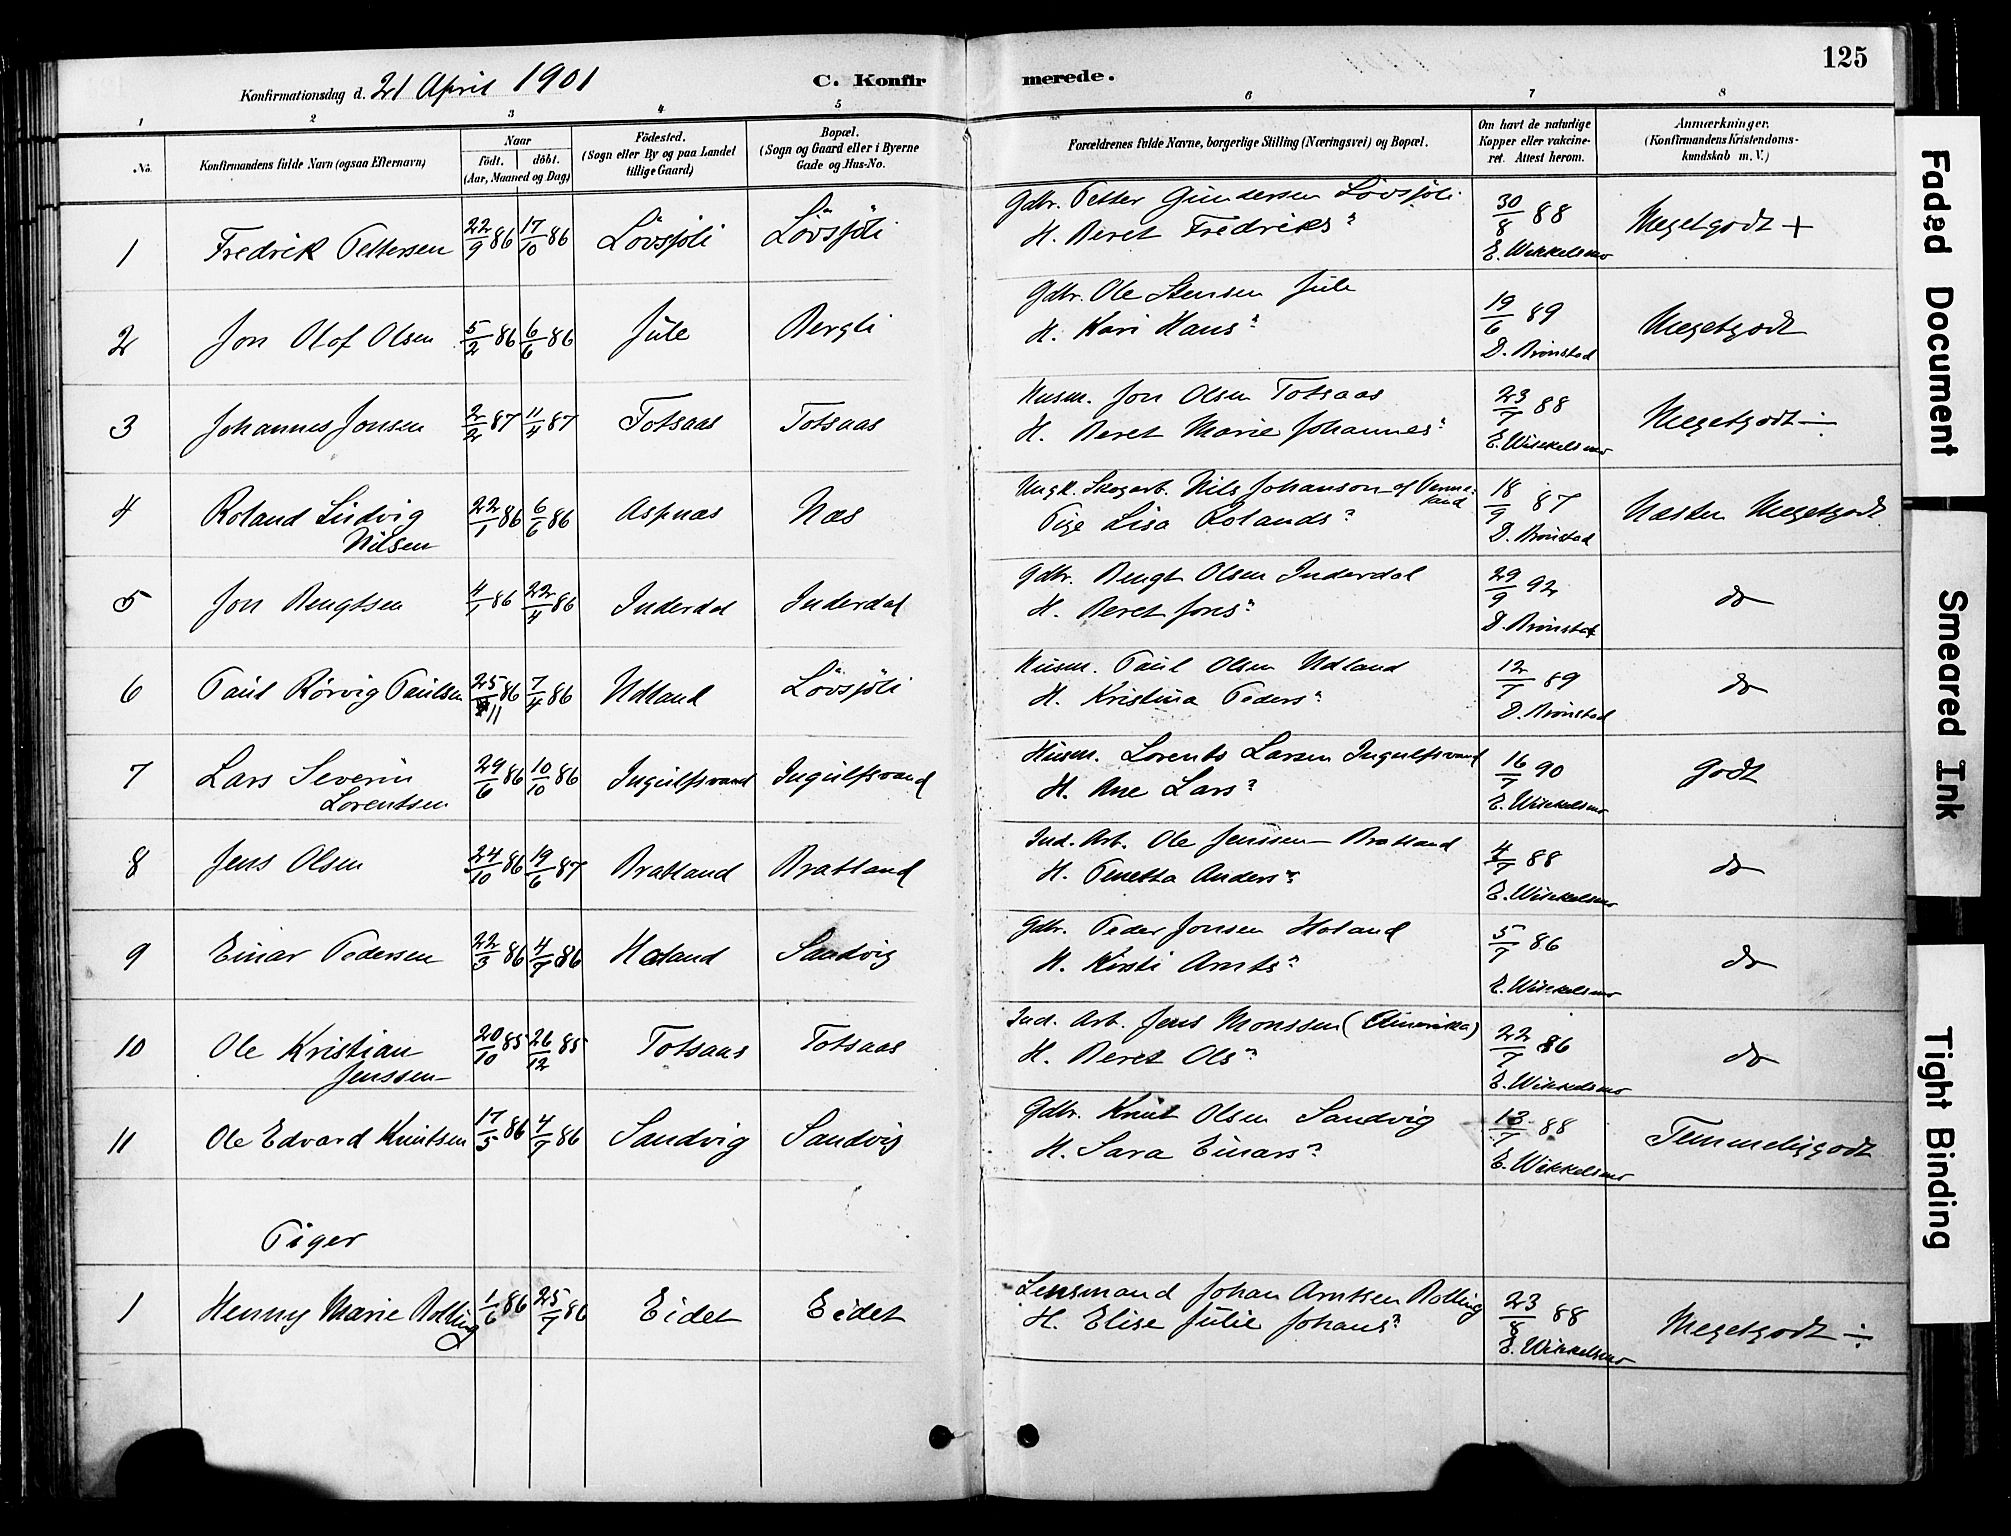 125
Konfirmationsdag d. 21 April 1901
C. Konfirmerede.
1 2 3 4 5 6 7 8
No.
Konfirmandens fulde Navn (ogsaa Efternavn)
Naar
født. døbt.
(Aar, Maaned og Dag)
Fødested.
(Sogn eller By og paa Landet
tillige Gaard)
Bopæl.
(Sogn og Gaard eller i Byerne
Gade og Hus-No.
Forældrenes fulde Navne, borgerlige Stilling (Næringsvei) og Bopæl.
Om havt de naturlige
Kopper eller vakcine-
ret. Attest herom.
Anmærkninger.
(Konfirmandens Kristendoms-
kundskab m. V.)
1 Fredrik Pettersen 22/9 86 17/10 86 Lövsjöli Lövsjöli
Gdbr. Petter Gundersen Lövsjöli
H. Beret Fredriks"
30/8 88
E. Wekkelsmo
Megetgodt +
2 Jon Olof Olsen 5/2 86 6/6 86 Jule Bergli
Gdbr. Ole Stensen Jule
H. Kari Hans"
19/6 89
D. Brönstad
Megetgodt
3 Johannes Jonsen 2/2 87 11/4 87 Totsaas Totsaas
Husm. Jon Olsen Totsaas
H. Beret Marie Johannes"
23/7 88
E. Wekkelsmo
Megetgodt ÷
4 Roland Ludvig
Nilsen
22/1 86 6/6 86 Aspnas Næs
Ungk. Skogarb. Nils Johanson af Verme-
land
Pige Lisa Rolands"
18/9 87
D. Brönstad
Næsten Megetgodt
5 Jon Bengtsen 4/1 86 22/4 86 Inderdal Inderdal
Gdbr. Bengt Olsen Inderdal
H. Beret Jons"
29/9 92
D. Brönstad
do
6 Paul Rörvig Paulsen 25/11 86 7/4 86 Udland Lövsjöli
Husm. Paul Olsen Udland
H. Kristina Peders"
12/7 89
D. Brönstad
do
7 Lars Severin
Lorentsen
29/6 86 10/10 86 Ingulfsvand Ingulfsvand
Husm. Lorents Larsen Ingulfsvand
H. Ane Lars"
16/7 90
E. Wekkelsmo
Godt
8 Jens Olsen 24/10 86 19/6 87 Bratland Bratland
Ind. Arb. Ole Jenssen Bratland
H. Penetta Anders"
4/7 88
E. Wekkelsmo
do
9 Einar Pedersen 22/3 86 4/7 86 Holand Sandvig
Gdbr. Peder Jonsen Holand
H. Kirsti Arnts"
5/7 86
E. Wekkelsmo
do
10 Ole Kristian
Jenssen
20/10 85 26/12 85 Totsaas Totsaas
Ind. Arb. Jens Monssen (Amerika)
H. Beret Ols"
22/7 86
E. Wekkelsmo
do
11 Ole Edvard Knutsen 17/5 86 4/7 86 Sandvig Sandvig
Gdbr. Knut Olsen Sandvig
H. Sara Einars"
13/7 88
E. Wekkelsmo
Temmeliggodt
Piger
1 Henny Marie Bolling 1/6 86 25/7 86 Eidet Eidet
Lensmand Johan Arntsen Bolling
H. Elise Julie Johans"
23/8 88
E. Wekkelsmo
Megetgodt ÷
Faded Document
Smeared Ink
Tight Binding